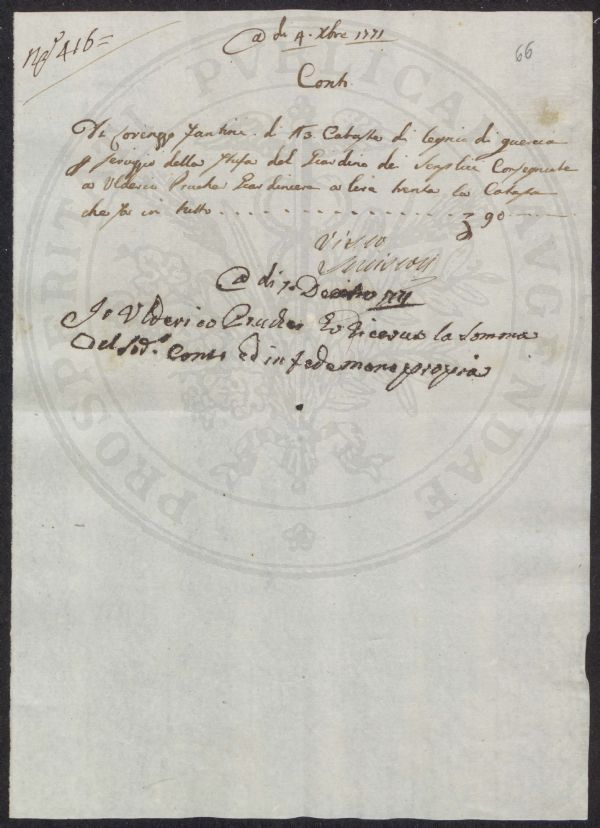 N.° 416=
66
A di 4. Xbre 1771
Conto
Di Lorenzo Fantini di N 3 Cataste di legnia di quercia
p servizio della stufa del Giardino de Semplici Consegniate
a Ulderico Pruches Giardiniere a lire trenta la Catasta
che fa in tutto . . . . . . . . . . . . . . . 90
Visto
A di Decebre 1771
Io Ulderico Pruches ho riceuto la somma
Del sod.° Conto ed in fede mano propria
PROSPERITATI PVBLICAE AVGENDAE